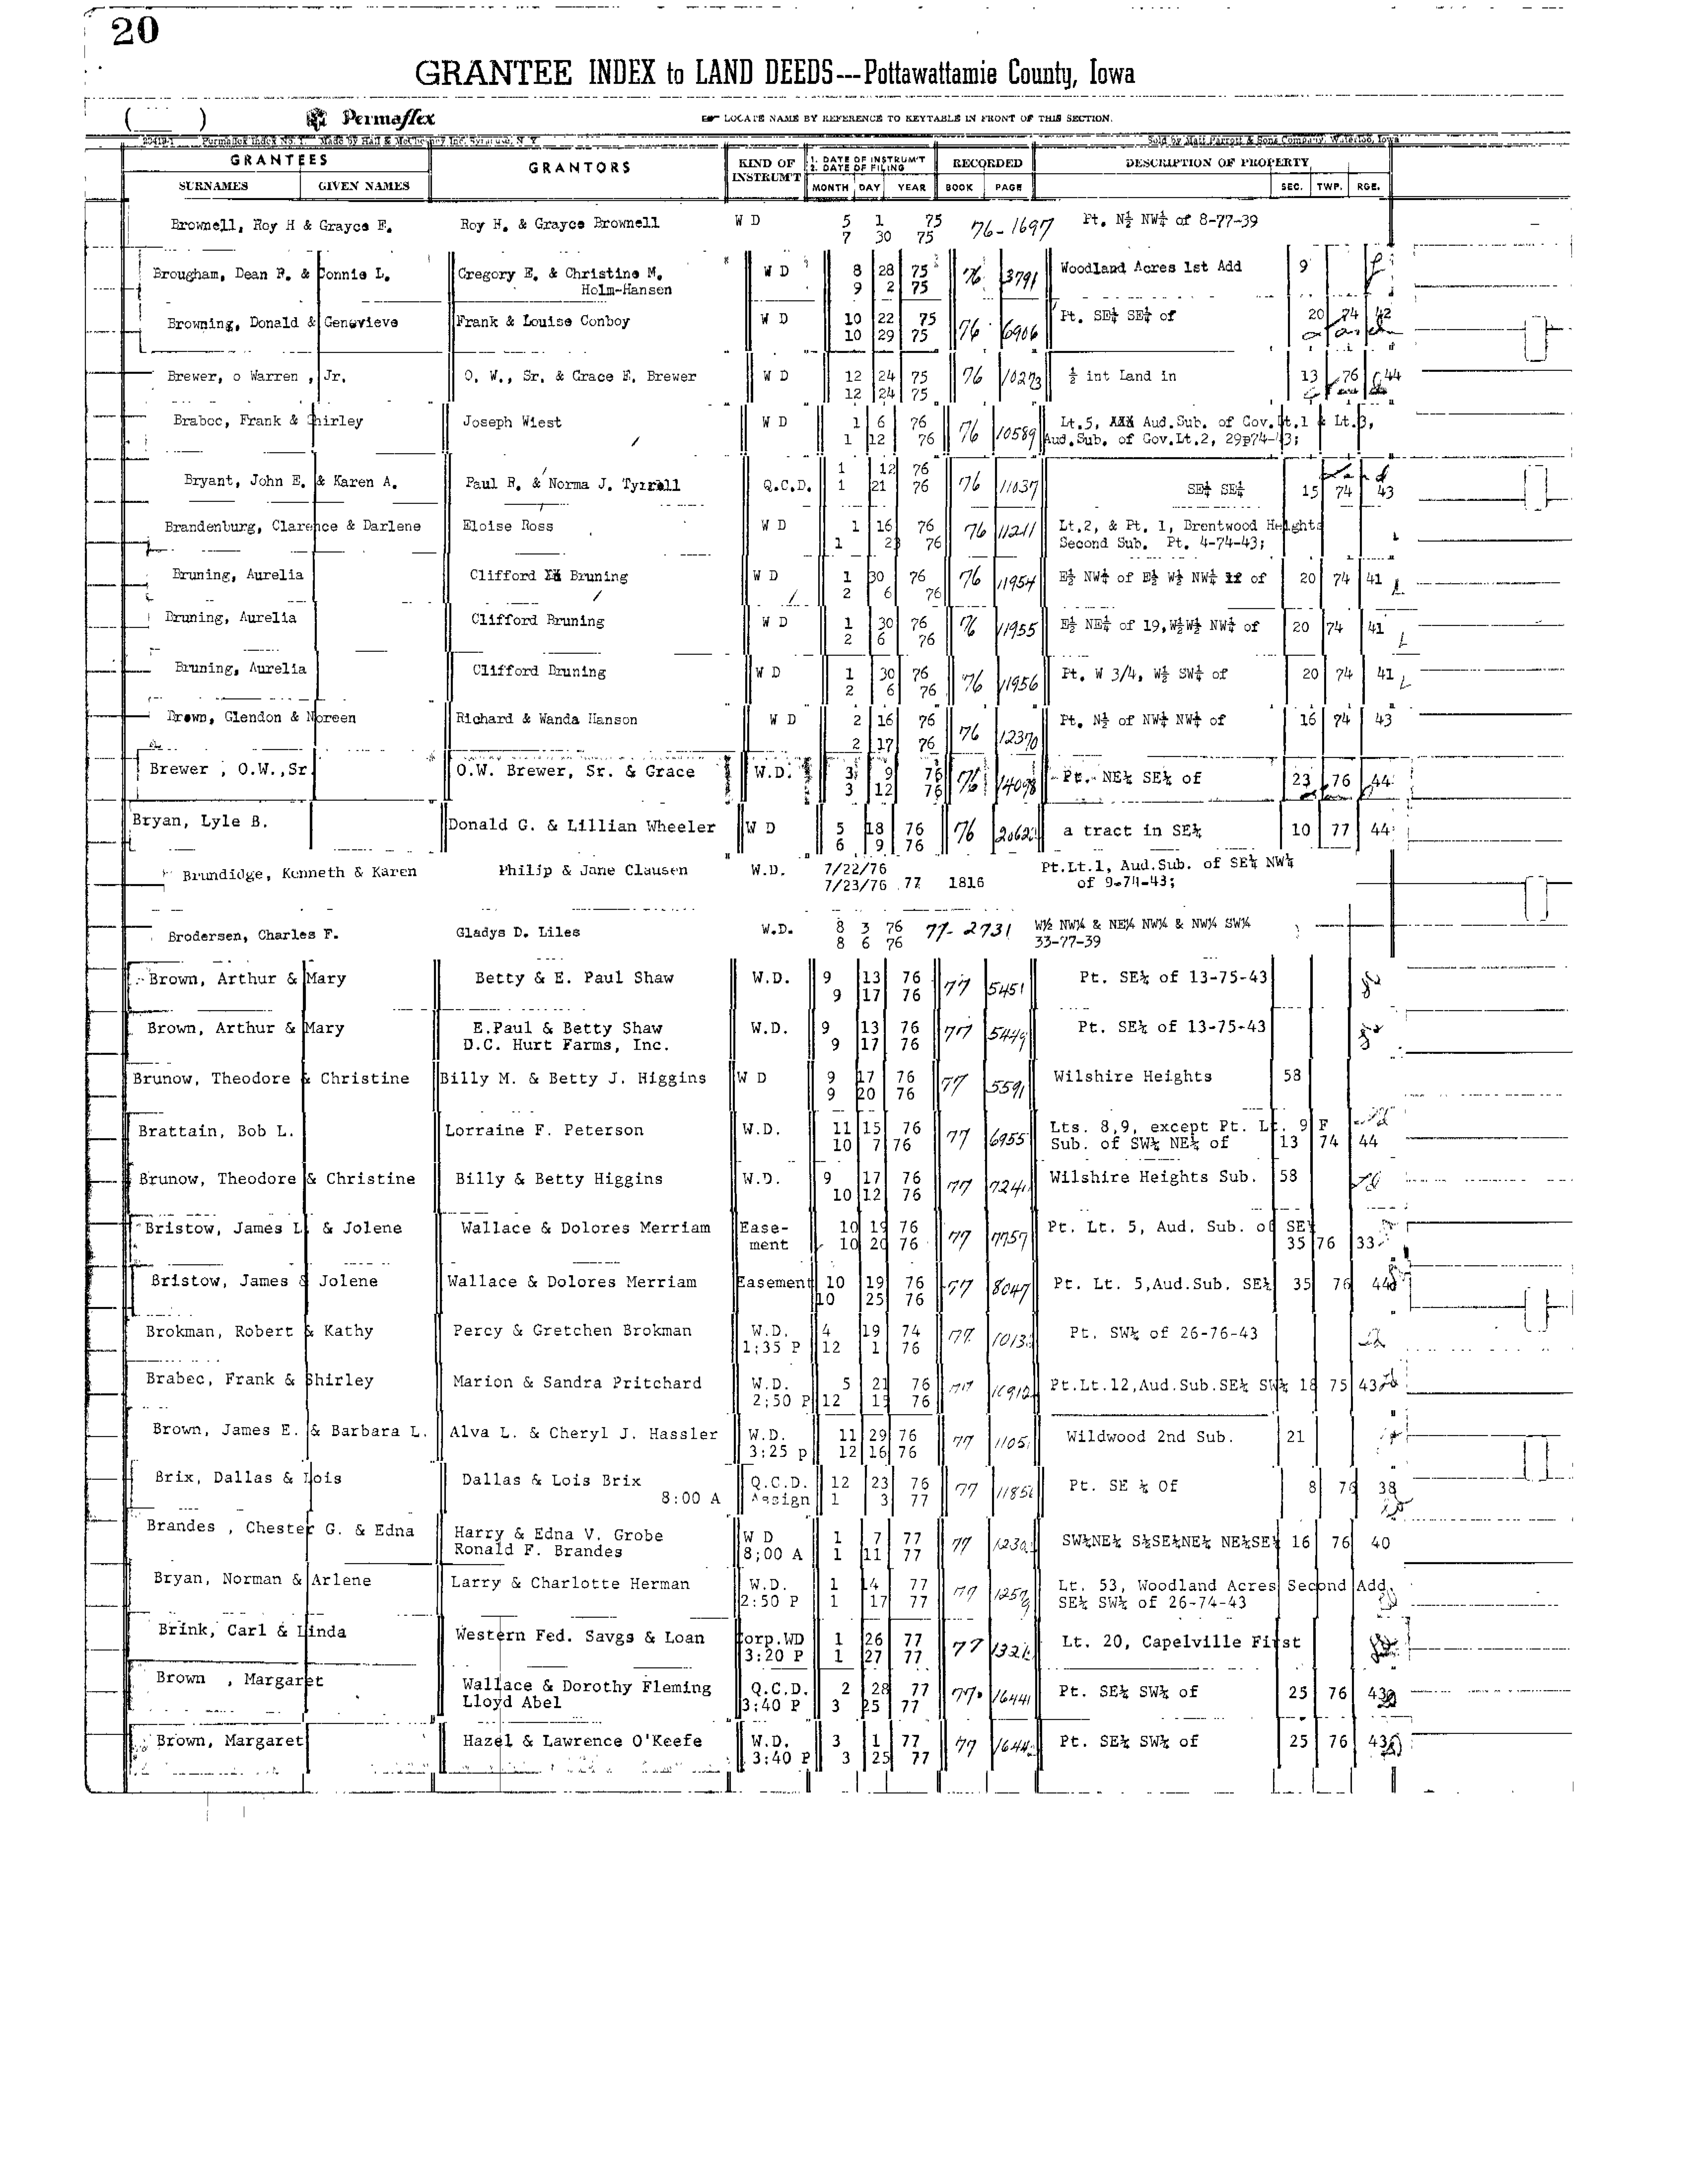 20
GRANTEE INDEX to LAND DEEDS---Pottawattamie County, Iowa
( ) Permaflex LOCATE NAME BY REFERENCE TO KEYTABLE IN FRONT OF THIS SECTION.
GRANTEES GRANTORS KIND OF INSTRUM'T 1. DATE OF INSTRUM'T 2. DATE OF FILING RECORDED DESCRIPTION OF PROPERTY
SURNAMES GIVEN NAMES MONTH DAY YEAR BOOK PAGE SEC. TWP. RGE.
Brownell, Roy H & Grayce E. Roy H. & Grayce Brownell W D 5 1 75 76-1697 Pt. N½ NW¼ of 8-77-39
7 30 75
Brougham, Dean R. & Connie L. Gregory E. & Christine M. W D 8 28 75 76 3791 Woodland Acres 1st Add 9
Holm-Hansen 9 2 75
Browning, Donald & Genevieve Frank & Louise Conboy W D 10 22 75 76 6906 Pt. SE¼ SE¼ of 20 74 42
10 29 75
Brewer, o Warren , Jr. O. W., Sr. & Grace E. Brewer W D 12 24 75 76 10273 ½ int Land in 13 76 44
12 24 75
Braboc, Frank & Shirley Joseph Wiest W D 1 6 76 76 10589 Lt.5, Aud.Sub. of Gov.Lt.1 & Lt.3,
1 12 76 Aud.Sub. of Gov.Lt.2, 29p74-43;
Bryant, John E. & Karen A. Paul R. & Norma J. Tyrrell Q.C.D. 1 12 76 76 11037 SE¼ SE¼ 15 74 43
1 21 76
Brandenburg, Clarence & Darlene Eloise Ross W D 1 16 76 76 11211 Lt.2, & Pt. 1, Brentwood Heights
1 23 76 Second Sub. Pt. 4-74-43;
Bruning, Aurelia Clifford Bruning W D 1 30 76 76 11954 E½ NW¼ of E½ W½ NW¼ of 20 74 41
2 6 76
Bruning, Aurelia Clifford Bruning W D 1 30 76 76 11955 E½ NE¼ of 19,W½W½ NW¼ of 20 74 41
2 6 76
Bruning, Aurelia Clifford Bruning W D 1 30 76 76 11956 Pt. W 3/4, W½ SW¼ of 20 74 41
2 6 76
Brown, Glendon & Noreen Richard & Wanda Hanson W D 2 16 76 76 12370 Pt. N½ of NW¼ NW¼ of 16 74 43
2 17 76
Brewer , O.W.,Sr. O.W. Brewer, Sr. & Grace W.D. 3 9 76 76 14098 Pt. NE¼ SE¼ of 23 76 44
3 12 76
Bryan, Lyle B. Donald G. & Lillian Wheeler W D 5 18 76 76 a tract in SE¼ 10 77 44
6 9 76
Brundidge, Kenneth & Karen Philip & Jane Clausen W.D. 7/22/76 Pt.Lt.1, Aud.Sub. of SE¼ NW¼
7/23/76 77 1816 of 9-74-43;
Brodersen, Charles F. Gladys D. Liles W.D. 8 3 76 77-2731 W½ NW¼ & NE¼ NW¼ & NW¼ SW¼
8 6 76 33-77-39
Brown, Arthur & Mary Betty & E. Paul Shaw W.D. 9 13 76 77 5451 Pt. SE¼ of 13-75-43
9 17 76
Brown, Arthur & Mary E.Paul & Betty Shaw W.D. 9 13 76 77 5449 Pt. SE¼ of 13-75-43
D.C. Hurt Farms, Inc. 9 17 76
Brunow, Theodore & Christine Billy M. & Betty J. Higgins W D 9 17 76 77 5591 Wilshire Heights 58
9 20 76
Brattain, Bob L. Lorraine F. Peterson W.D. 11 15 76 77 6955 Lts. 8,9, except Pt. Lt. 9 F
10 7 76 Sub. of SW¼ NE¼ of 13 74 44
Brunow, Theodore & Christine Billy & Betty Higgins W.D. 9 17 76 77 7241 Wilshire Heights Sub. 58
10 12 76
Bristow, James L. & Jolene Wallace & Dolores Merriam Ease- 10 19 76 77 7757 Pt. Lt. 5, Aud. Sub. of SE¼
ment 10 20 76 35 76 33
Bristow, James & Jolene Wallace & Dolores Merriam Easement 10 19 76 77 8047 Pt. Lt. 5,Aud.Sub. SE¼ 35 76 44
10 25 76
Brokman, Robert & Kathy Percy & Gretchen Brokman W.D. 4 19 74 77 Pt. SW¼ of 26-76-43
1:35 P 12 1 76
Brabec, Frank & Shirley Marion & Sandra Pritchard W.D. 5 21 76 77 Pt.Lt.12,Aud.Sub.SE¼ SW¼ 18 75 43
2:50 P 12 76
Brown, James E. & Barbara L. Alva L. & Cheryl J. Hassler W.D. 11 29 76 77 Wildwood 2nd Sub. 21
3:25 p 12 16 76
Brix, Dallas & Lois Dallas & Lois Brix Q.C.D. 12 23 76 77 Pt. SE ¼ Of 8 76 38
8:00 A Assign 1 3 77
Brandes , Chester G. & Edna Harry & Edna V. Grobe W D 1 7 77 77 SW¼NE¼ S½SE¼NE¼ NE¼SE¼ 16 76 40
Ronald F. Brandes 8;00 A 1 11 77
Bryan, Norman & Arlene Larry & Charlotte Herman W.D. 1 14 77 77 Lt. 53, Woodland Acres Second Add.
2:50 P 1 17 77 SE¼ SW¼ of 26-74-43
Brink, Carl & Linda Western Fed. Savgs & Loan Corp.WD 1 26 77 77 Lt. 20, Capelville First
3:20 P 1 27 77
Brown , Margaret Wallace & Dorothy Fleming Q.C.D. 2 28 77 77 16441 Pt. SE¼ SW¼ of 25 76 43
Lloyd Abel 3:40 P 3 25 77
Brown, Margaret Hazel & Lawrence O'Keefe W.D. 3 1 77 77 Pt. SE¼ SW¼ of 25 76 43
3:40 P 3 25 77